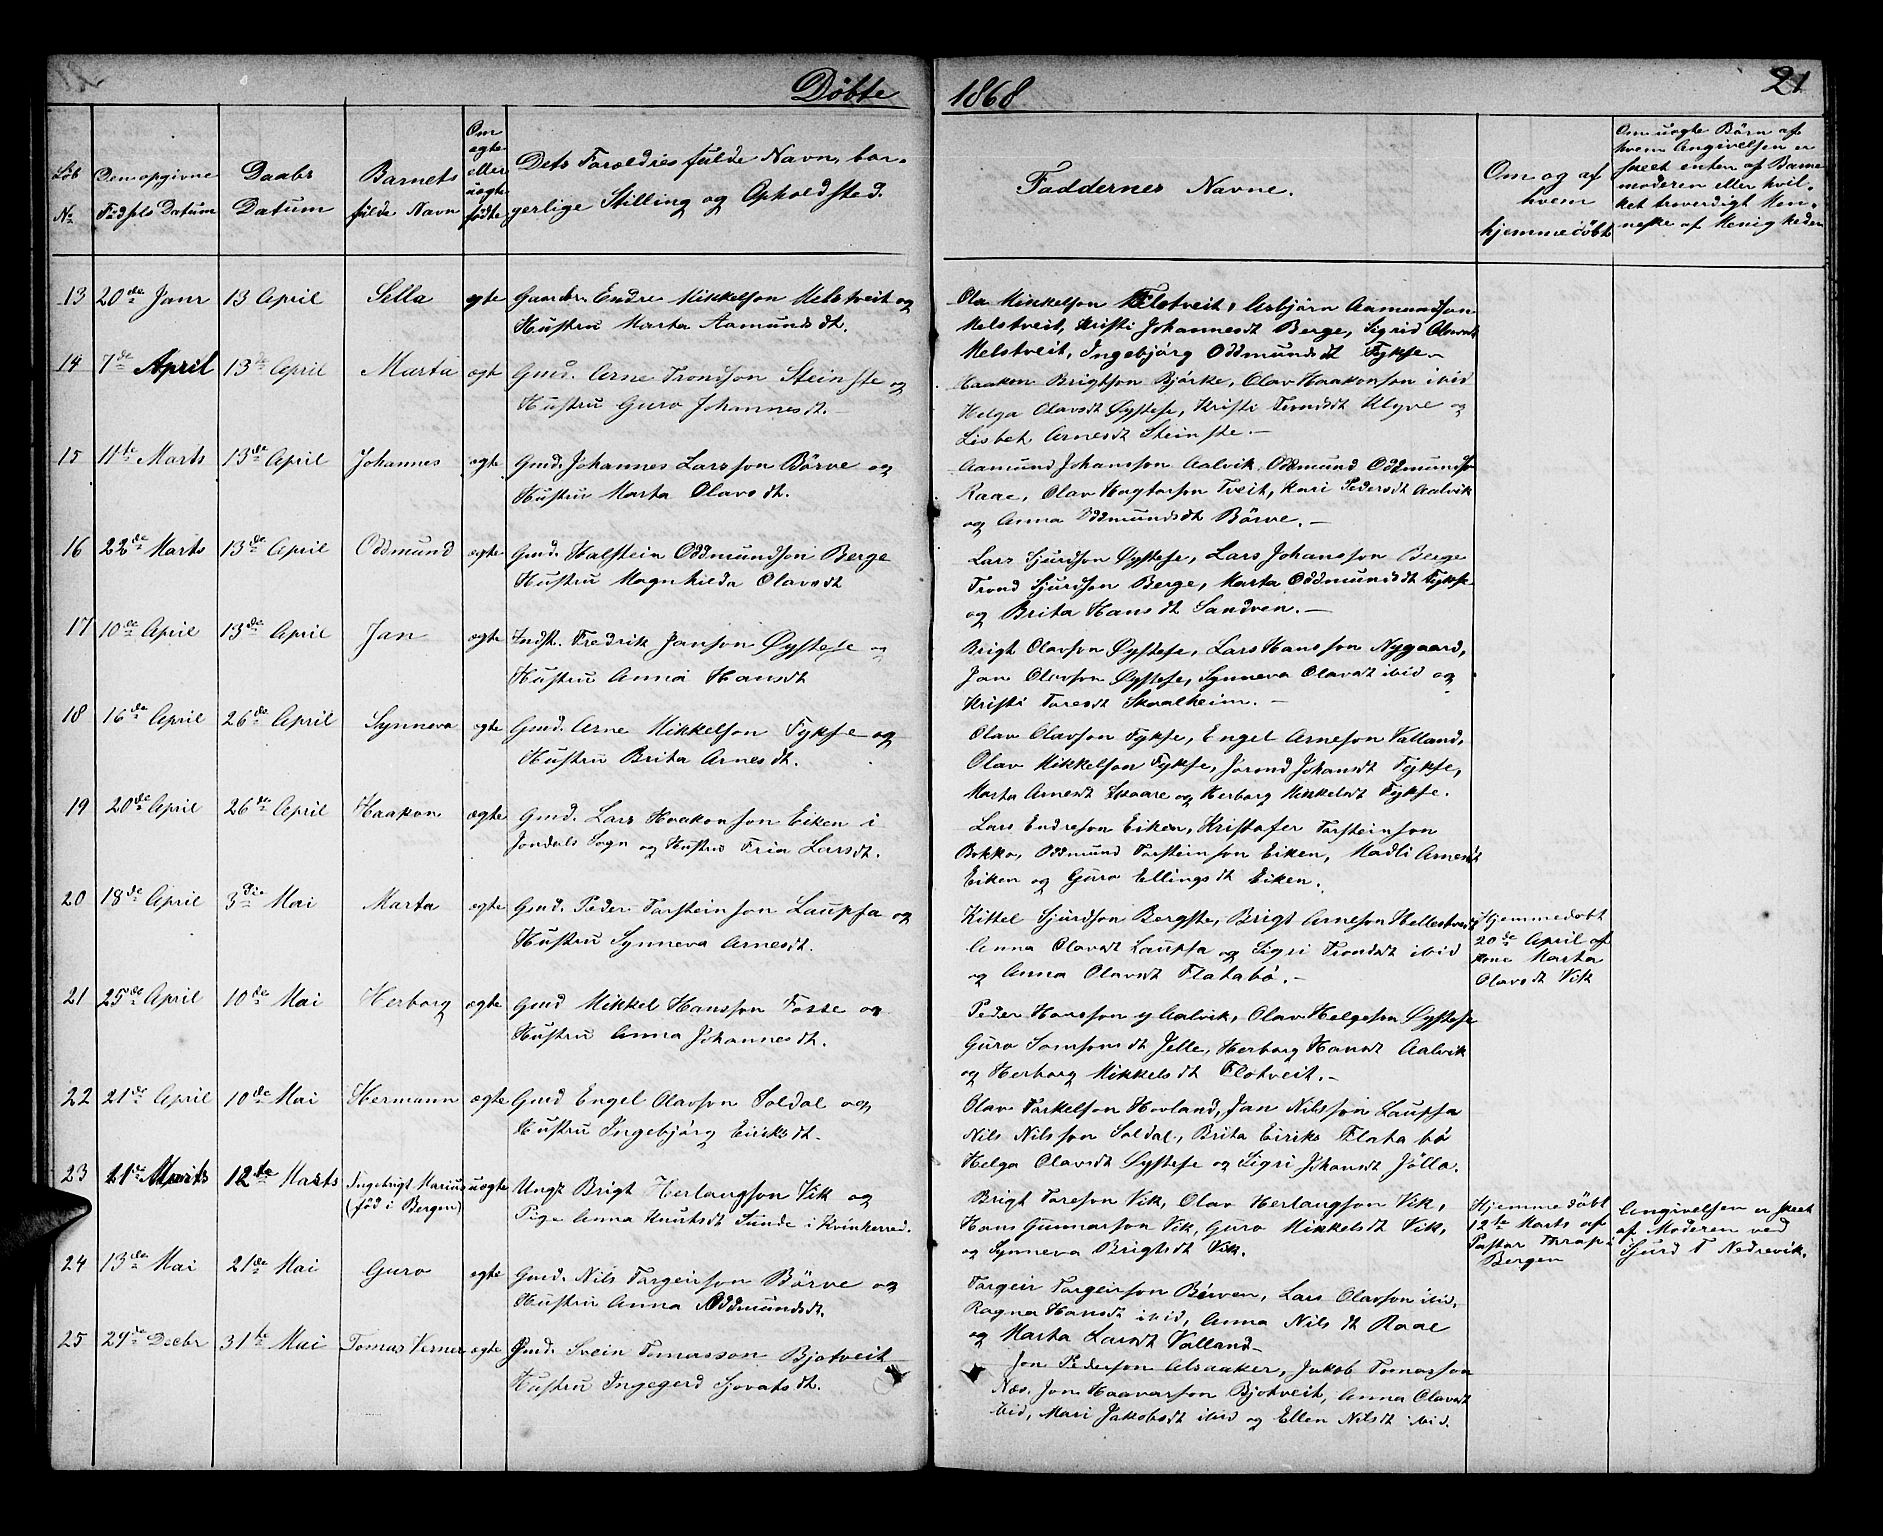 Døbte
1868
21
Løb No
Den opgivne Fødsels Datum
Daabs Datum
Barnets fulde Navn
Om ægte eller uægte fødte
Dets Forældres fulde Navn, bor-
gerlige Stilling og Opholdsted.
Faddernes Navne.
Om og af hvem hjemmedøbt
Om uægte Børn af
hvem Angivelsen er
skeet enten af Barne
moderen eller hvil-
ket troverdigt Men-
neske af Menigheden
13 20de Janr 13 April Sella ægte Gaardbr. Endre Mikkelson Melstveit og
Hustru Marta Aamundsdt.
Ola Mikkelson Flotveit, Asbjørn Aamundson
Melstveit, Kristi Johannesdt Berge, Sigrid Olavsdt
Melstveit, Ingebjørg Oddmundsdt Fykse
14 7de April 13de April Marta ægte Gmd. Arne Trondson Steinste og
Hustru Guro Johannesdt.
Haaken Brigtson Bjørke, Olav Haakonson ibid
Helga Olavsdt Øystese, Kristi Trondsdt Klyve og
Lisbet Arnesdt Steinste.
15 11te Marts 13de April Johannes ægte Gmd. Johannes Larsson Børve og
Hustru Marta Olavsdt.
Aamund Johansson Aalvik, Oddmund Oddmundson
Raae, Olav Hagtorson Tveit, Kari Pedersdt Aalvik
og Anna Oddmundsdt Børve.
16 22de Marts 13de April Oddmund ægte Gmd. Halstein Oddmundson Berge
Hustru Magnhilda Olavsdt
Lars Sjurdson Øystese, Lars Johansson Berge
Trond Sjurdson Berge, Marta Oddmundsdt Fykse
og Brita Hansdt Sandven.
17 10de April 13de April Jan ægte Indst. Fredrik Janson Øystese og
Hustru Anna Hansdt
Brigt Olavson Øystese, Lars Hansson Nygaard,
Jan Olavson Øystese, Synneva Olavsdt ibid og
Kristi Toresdt Skaalheim.
18 16de April 26de April Synneva ægte Gmd. Arne Mikkelson Fykse og
Hustru Brita Arnesdt.
Olav Olavson Fykse, Engel Arneson Valland,
Olav Mikkelson Fykse, Jorond Johansdt Fykse,
Marta Arnesdt Skaare og Herborg Mikkelsdt Fykse.
19 20de April 26de April Haakon ægte Gmd. Lars Haakonson Eiken i
Jondals Sogn og Hustru Fria Larsdt.
Lars Endreson Eiken, Kristofer Torsteinson
Bokko, Oddmund Torsteinson Eiken, Madli Arnesdt
Eiken og Guro Ellingsdt Eiken.
20 18de April 3die Mai Marta ægte Gmd. Peder Torsteinson Laupsa og
Hustru Synneva Arnesdt.
Kittel Sjurdson Bergste, Brigt Arneson Hellestveit
Anna Olavsdt Laupsa og Sigri Trondsdt ibid
og Anna Olavsdt Flatabø.
Hjemmedøbt
20de April af
Kone Marta
Olavsdt Vik
21 25de April 10de Mai Herborg ægte Gmd Mikkel Hansson Fosse og
Hustru Anna Johannesdt.
Peder Hansson y Aalvik, Olav Helgeson Øystese
Guro Samsonsdt Jelle, Herborg Hansdt Aalvik
og Herborg Mikkelsdt Flotveit.
22 21de April 10de Mai Hermann ægte Gmd Engel Olavson Soldal og
Hustru Ingebjørg Eiriksdt.
Olav Torkelson Hovland, Jan Nilsson Laupsa
Nils Nilsson Soldal, Brita Eiriks Flatabø
Helga Olavsdt Øystese og Sigri Johansdt Jølla.
23 21de Marts 12te Marts Ingebrigt Marius (fød i Bergen) uægte Ungk Brigt Herlaugson Vik og
Pige Anna Knutsdt Sunde i Kvinherred.
Brigt Toreson Vik, Olav Herlaugson Vik,
Hans Gunnarson Vik, Guro Mikkelsdt Vik,
og Synneva Brigtsdt Vik.
Hjemmedøbt
12te Marts af
Pastor i
Bergen
Angivelsen er skeet
af Moderen ved
Sjurd T Nedrevik.
24 13de Mai 21de Mai Guro ægte Gmd. Nils Torgeirson Børve og
Hustru Anna Oddmundsdt.
Torgeir Torgeirson Børven, Lars Olavson ibid,
Ragna Hansdt ibid, Anna Nilsdt Raae
og Marta Larsdt Valland
25 24de Decbr 31te Mai Tomas Verner ægte Gmd. Svein Tomasson Bjotveit
Hustru Ingegerd Sjovatsdt.
Jon Pederson Alsaaker, Jakob Tomasson
Næs, Jon Haavarson Bjotveit, Anna Olavsdt
ibid, Mari Jakobsdt ibid og Ellen Nilsdt ibid.